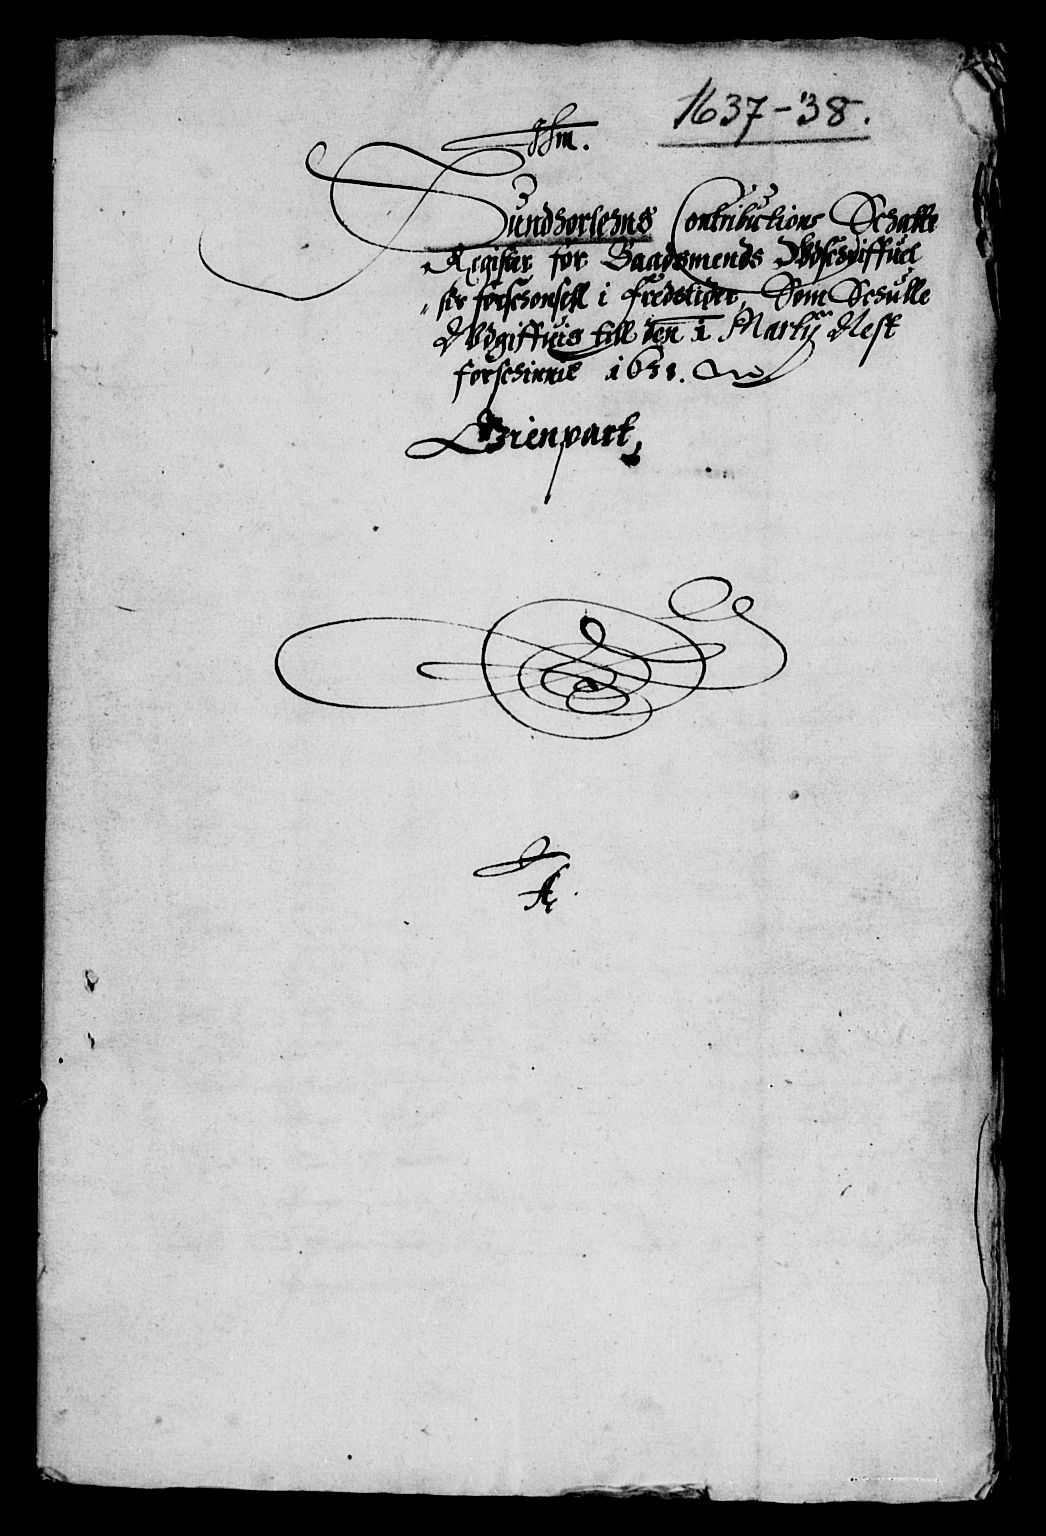 1637-38.
Sundhorlehns Contributions Schatte
Register for Baadsmends Wdschriffuel
ser forschonsell i fredstider, Som Schulle
Wdgiffuis till den 1 Martij Nest
forschinnit 1638.
Gienpart,
A.